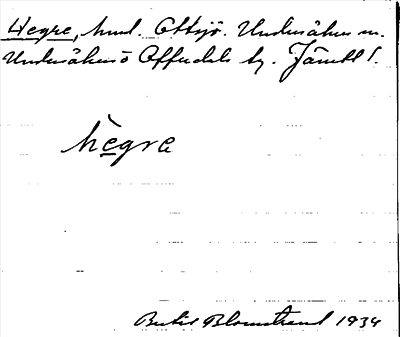 Hegre, hmd. Ottsjö. Undersåkers sn.
Undersåkers o Offerdals tg. Jämtl l.
hègre
Bertil Blomstrand 1934